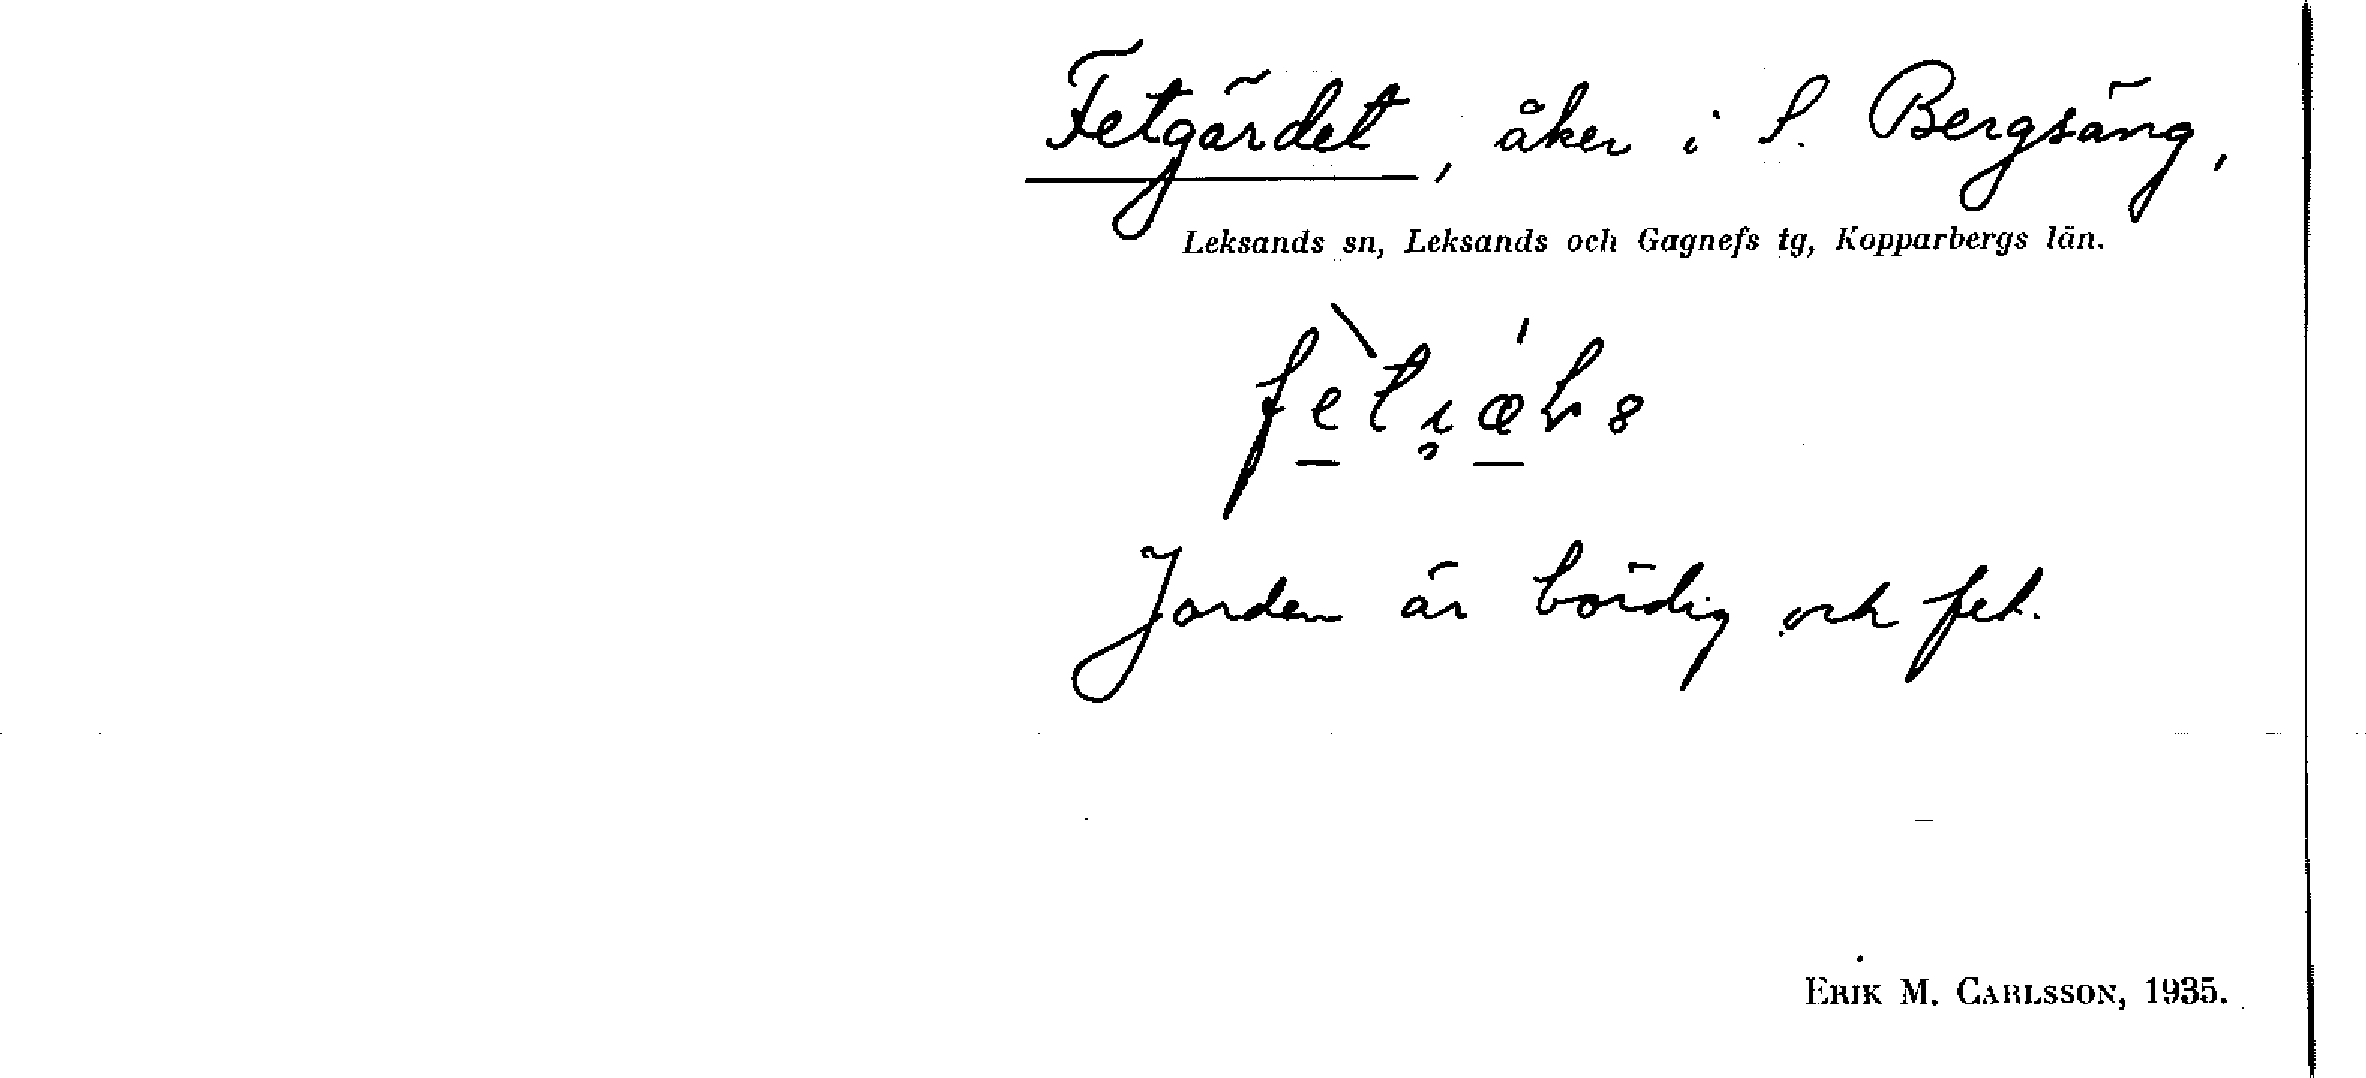 Fetgärdet, åker i S. Bergsäng,
Leksands sn, Leksands och Gagnefs tg, Kopparbergs län.
Jorden är bördig och fet.
ERIK M. CARLSSON, 1935.